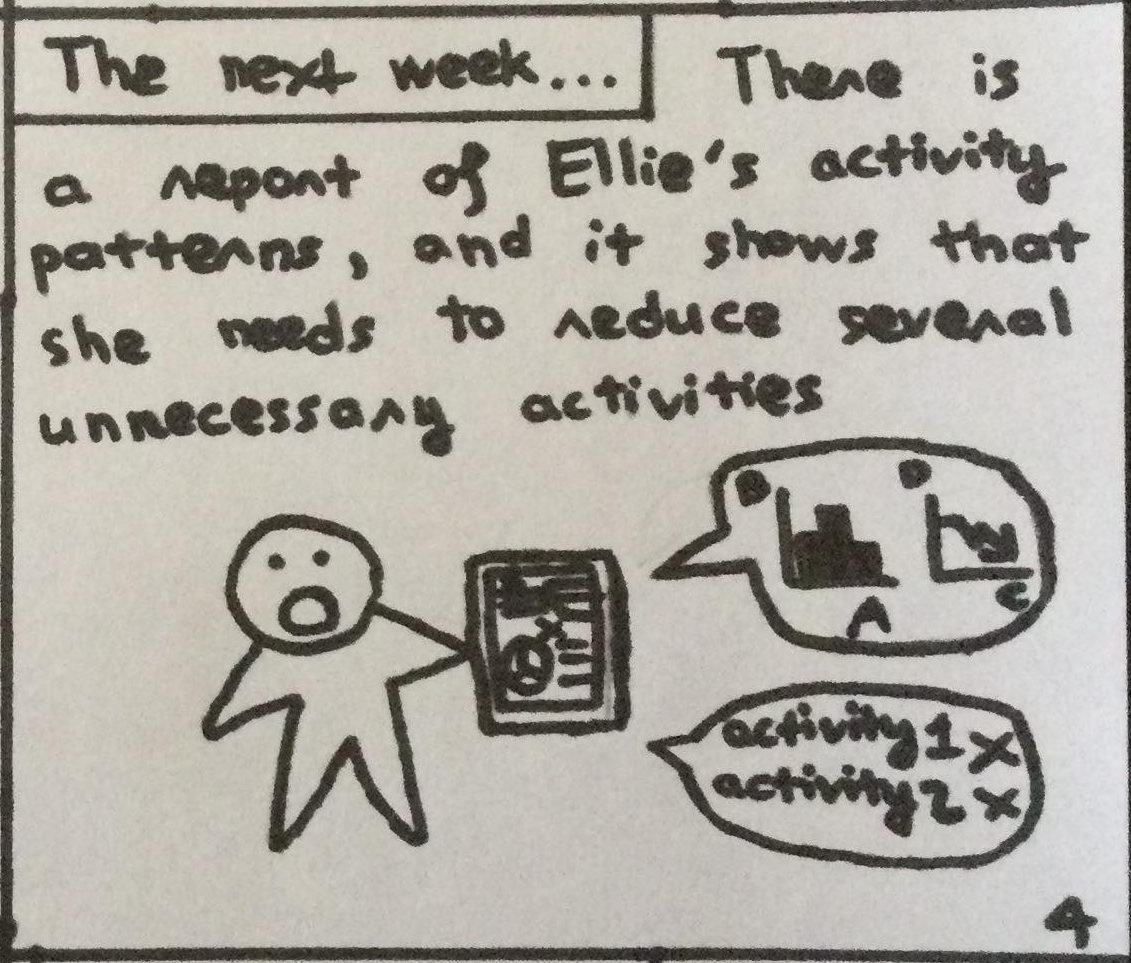 The next week...
There is
a report of Ellie's activity
patterns, and it shows that
she needs to reduce several
unnecessary activities
B
D
A
C
activity 1 x
activity 2 x
4